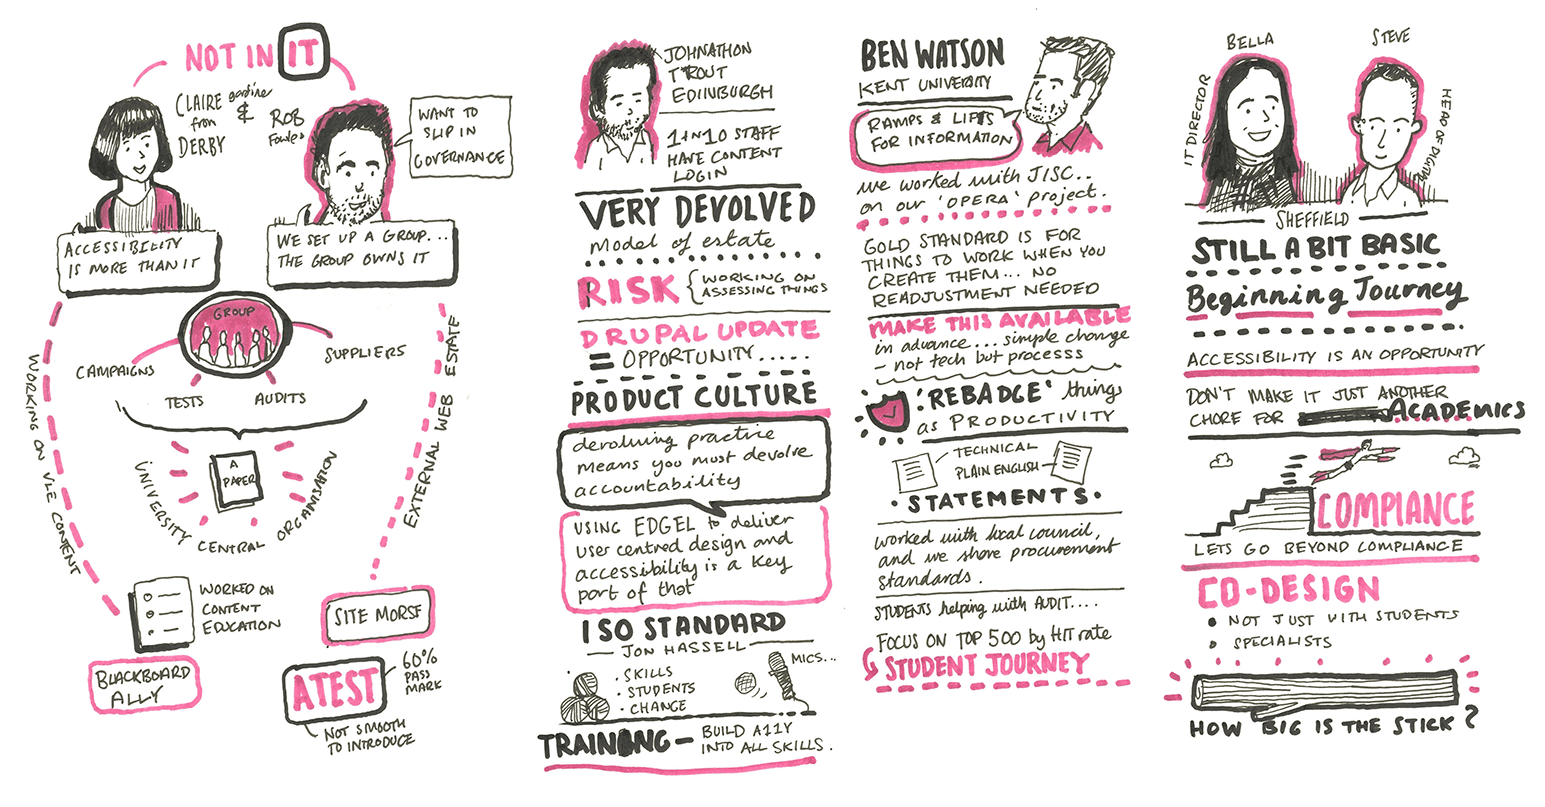 NOT IN IT
CLAIRE gardiner &
from
DERBY
ROB
Fowles
WANT TO
SLIP IN
GOVERNANCE
ACCESSIBILITY
IS MORE THAN IT
WE SET UP A GROUP...
THE GROUP OWNS IT
GROUP
CAMPAIGNS
SUPPLIERS
TESTS
AUDITS
A
PAPER
UNIVERSITY CENTRAL ORGANISATION
WORKING ON VLE CONTENT
EXTERNAL WEB ESTATE
WORKED ON
CONTENT
EDUCATION
BLACKBOARD
ALLY
SITE MORSE
ATEST
60%
PASS
MARK
NOT SMOOTH
TO INTRODUCE
JOHNATHON
TROUT
EDINBURGH
1 IN 10 STAFF
HAVE CONTENT
LOGIN
VERY DEVOLVED
model of estate
RISK
WORKING ON
ASSESSING THINGS
DRUPAL UPDATE
= OPPORTUNITY.....
PRODUCT CULTURE
devolving practice
means you must devolve
accountability
USING EDGEL to deliver
user centred design and
accessibility is a key
part of that
ISO STANDARD
JON HASSELL
• SKILLS
• STUDENTS
• CHANGE
MICS...
TRAINING — BUILD A11Y
INTO ALL SKILLS.
BEN WATSON
KENT UNIVERSITY
RAMPS & LIFTS
FOR INFORMATION
we worked with JISC...
on our 'OPERA' project.
GOLD STANDARD IS FOR
THINGS TO WORK WHEN YOU
CREATE THEM... NO
READJUSTMENT NEEDED
MAKE THIS AVAILABLE
in advance... simple change
- not tech but processs
'REBADGE' things
as PRODUCTIVITY
TECHNICAL
PLAIN ENGLISH
• STATEMENTS •
worked with local council,
and we share procurement
standards.
STUDENTS helping with AUDIT....
FOCUS ON TOP 500 by HIT rate
STUDENT JOURNEY
BELLA
STEVE
IT DIRECTOR
HEAD OF DIGITAL
SHEFFIELD
STILL A BIT BASIC
Beginning Journey
ACCESSIBILITY IS AN OPPORTUNITY
DON'T MAKE IT JUST ANOTHER
CHORE FOR ACADEMICS
COMPLIANCE
LETS GO BEYOND COMPLIANCE
CO-DESIGN
• NOT JUST WITH STUDENTS
• SPECIALISTS
HOW BIG IS THE STICK?